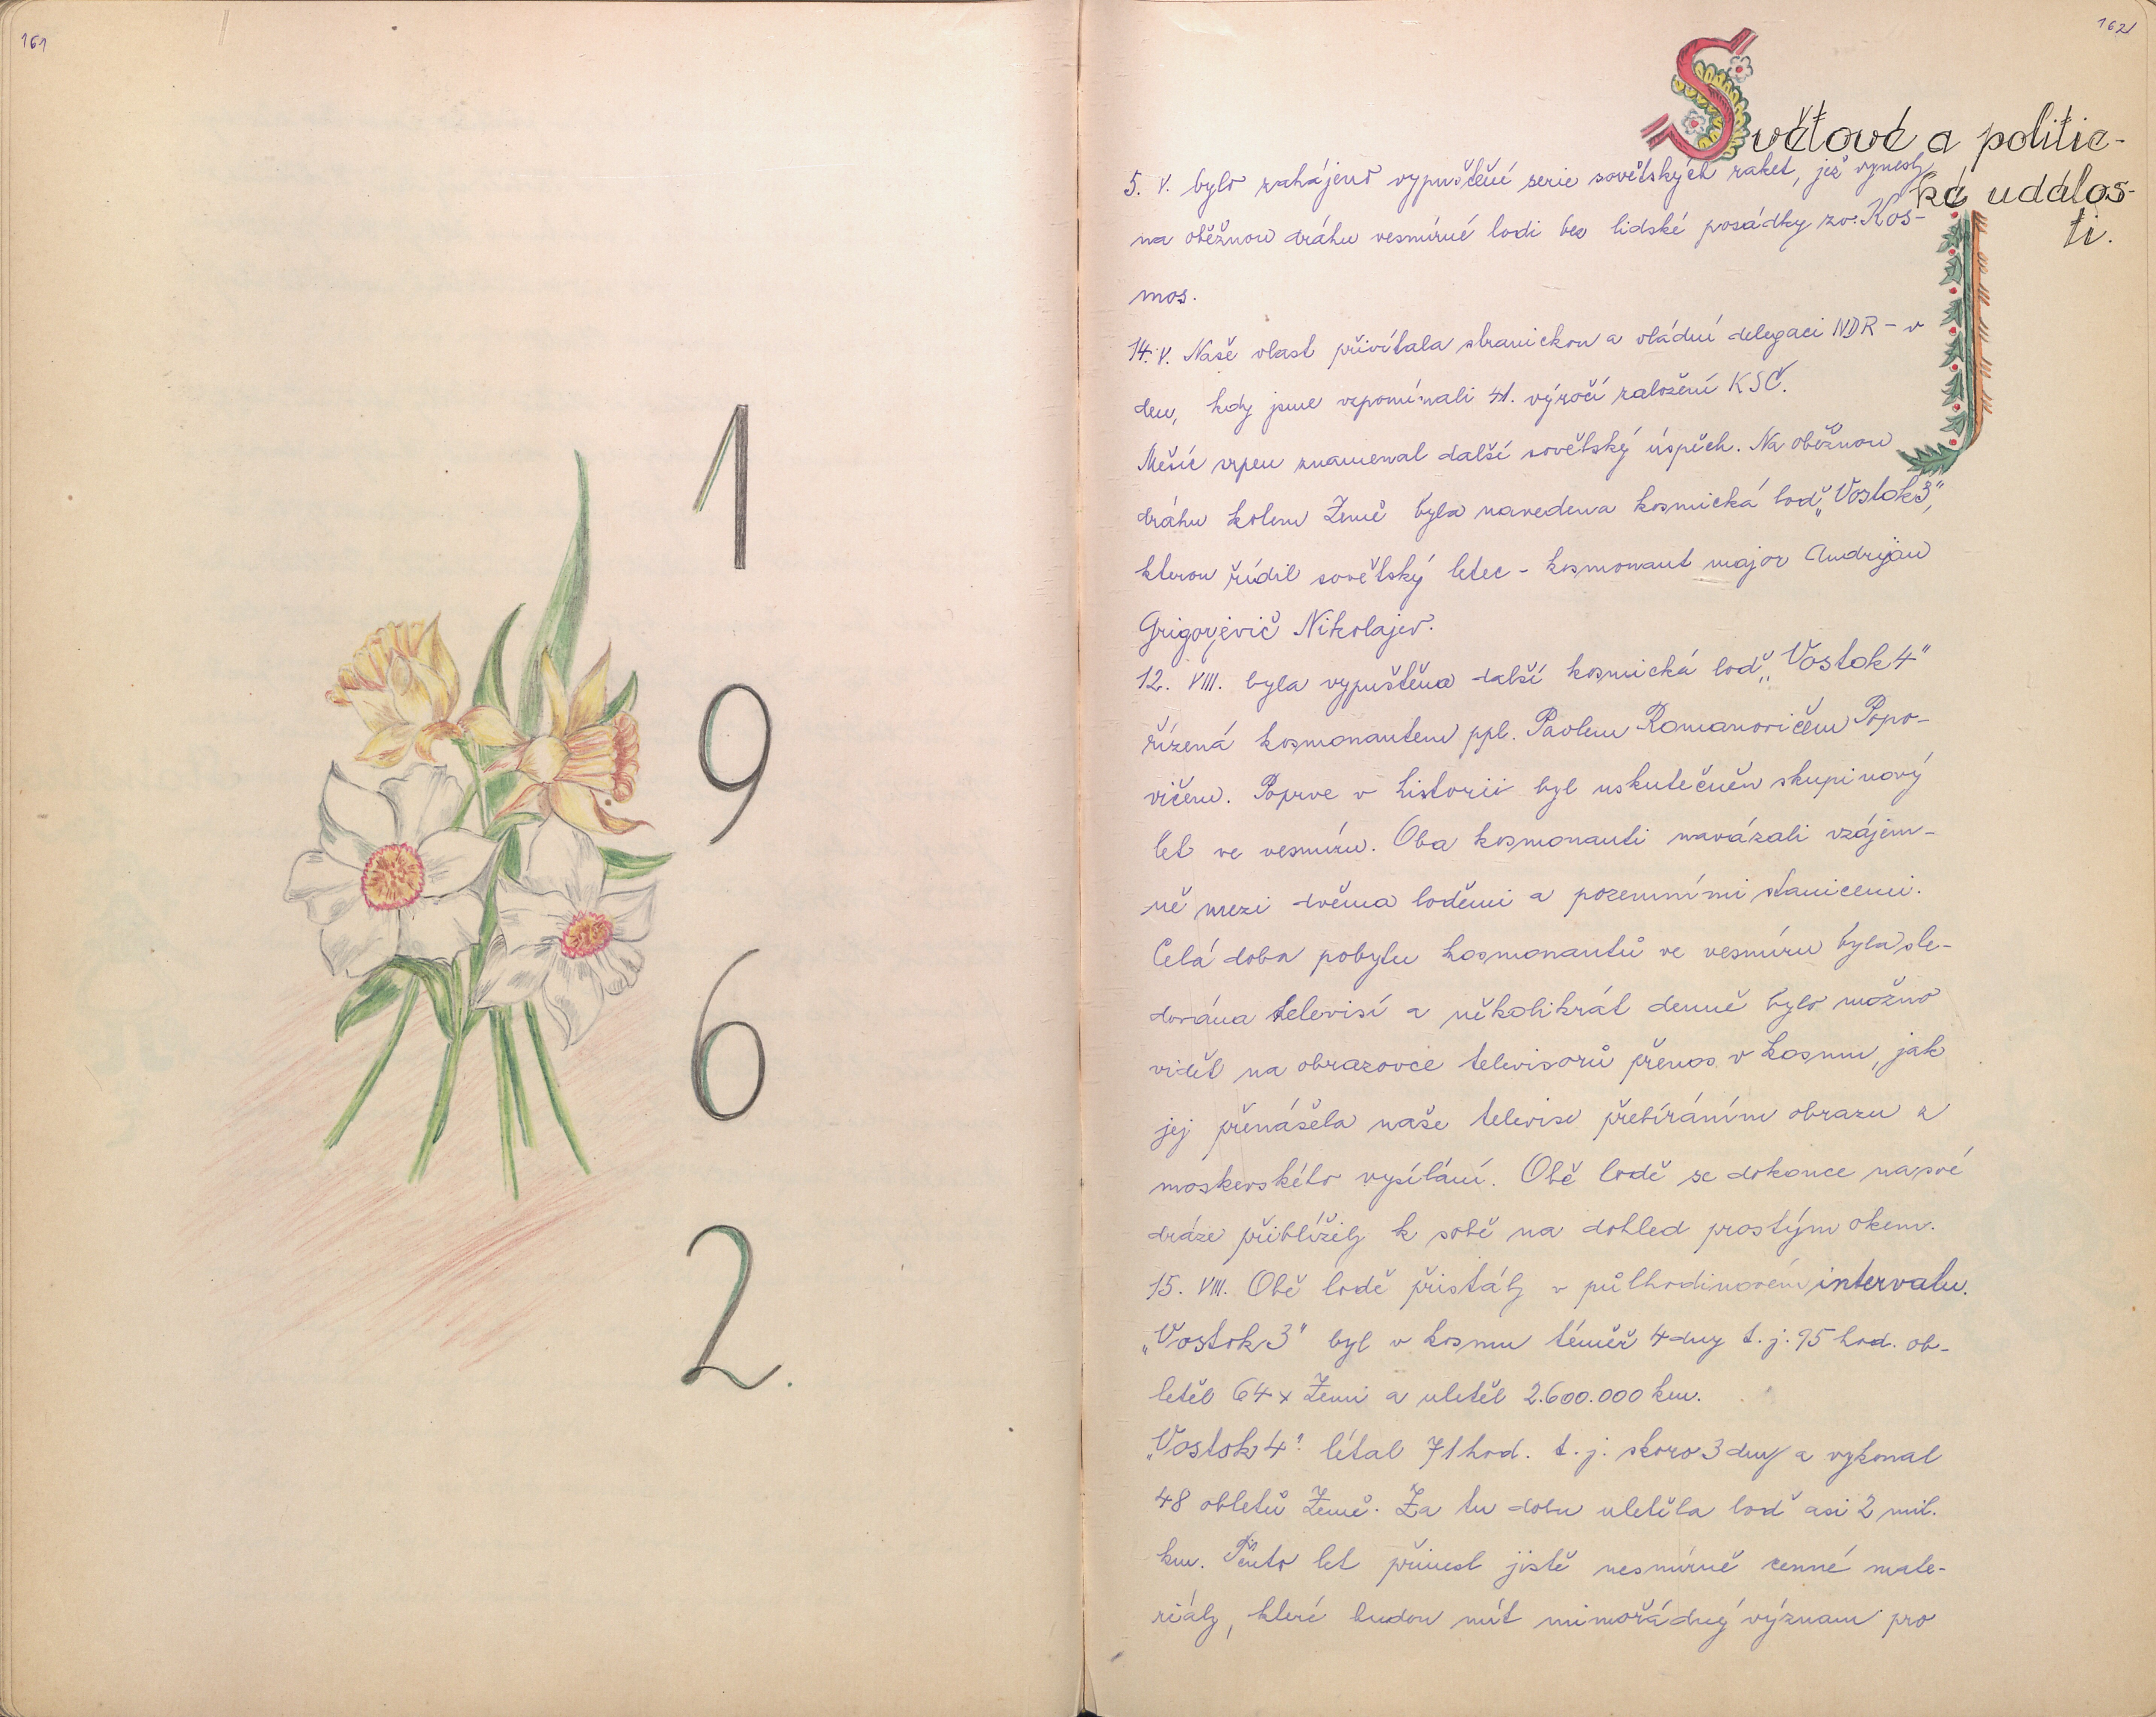 161
1
9
6
2.
162
Světové a politic-
ké událos-
ti.
5. V. bylo zahájeno vypuštění serie sovětských raket, jež vynesly
na oběžnou dráhu vesmírné lodi bez lidské posádky zv. Kos-
mos.
14. V. Naše vlast přivítala stranickou a vládní delegaci NDR - v
den, kdy jsme vzpomínali 41. výročí založení KSČ.
Měsíc srpen znamenal další sovětský úspěch. Na oběžnou
dráhu kolem Země byla navedena kosmická loď „Vostok 3",
kterou řídil sovětský letec - kosmonaut major Andrijan
Grigorjevič Nikolajev.
12. VIII. byla vypuštěna další kosmická loď „Vostok 4"
řízená kosmonautem ppl. Pavlem Romanovičem Popo-
vičem. Poprve v historii byl uskutečněn skupinový
let ve vesmíru. Oba kosmonauti navázali vzájem-
ně mezi dvěma loděmi a pozemními stanicemi.
Celá doba pobytu kosmonautů ve vesmíru byla sle-
dována televisí a několikrát denně bylo možno
vidět na obrazovce televisorů přenos v kosmu, jak
jej přenášela naše televise přebíráním obrazu z
moskevského vysílání. Obě lodě se dokonce na své
dráze přiblížily k sobě na dohled prostým okem.
15. VIII. Obě lodě přistály v půlhodinovém intervalu.
„Vostok 3" byl v kosmu téměř 4 dny t. j. 95 hod. ob-
letěl 64 x Zemi a uletěl 2.600.000 km.
„Vostok 4" létal 71 hod. t. j. skoro 3 dny a vykonal
48 obletů Země. Za tu dobu uletěla loď asi 2 mil.
km. Tento let přinesl jistě nesmírně cenné mate-
riály, které budou mít mimořádný význam pro